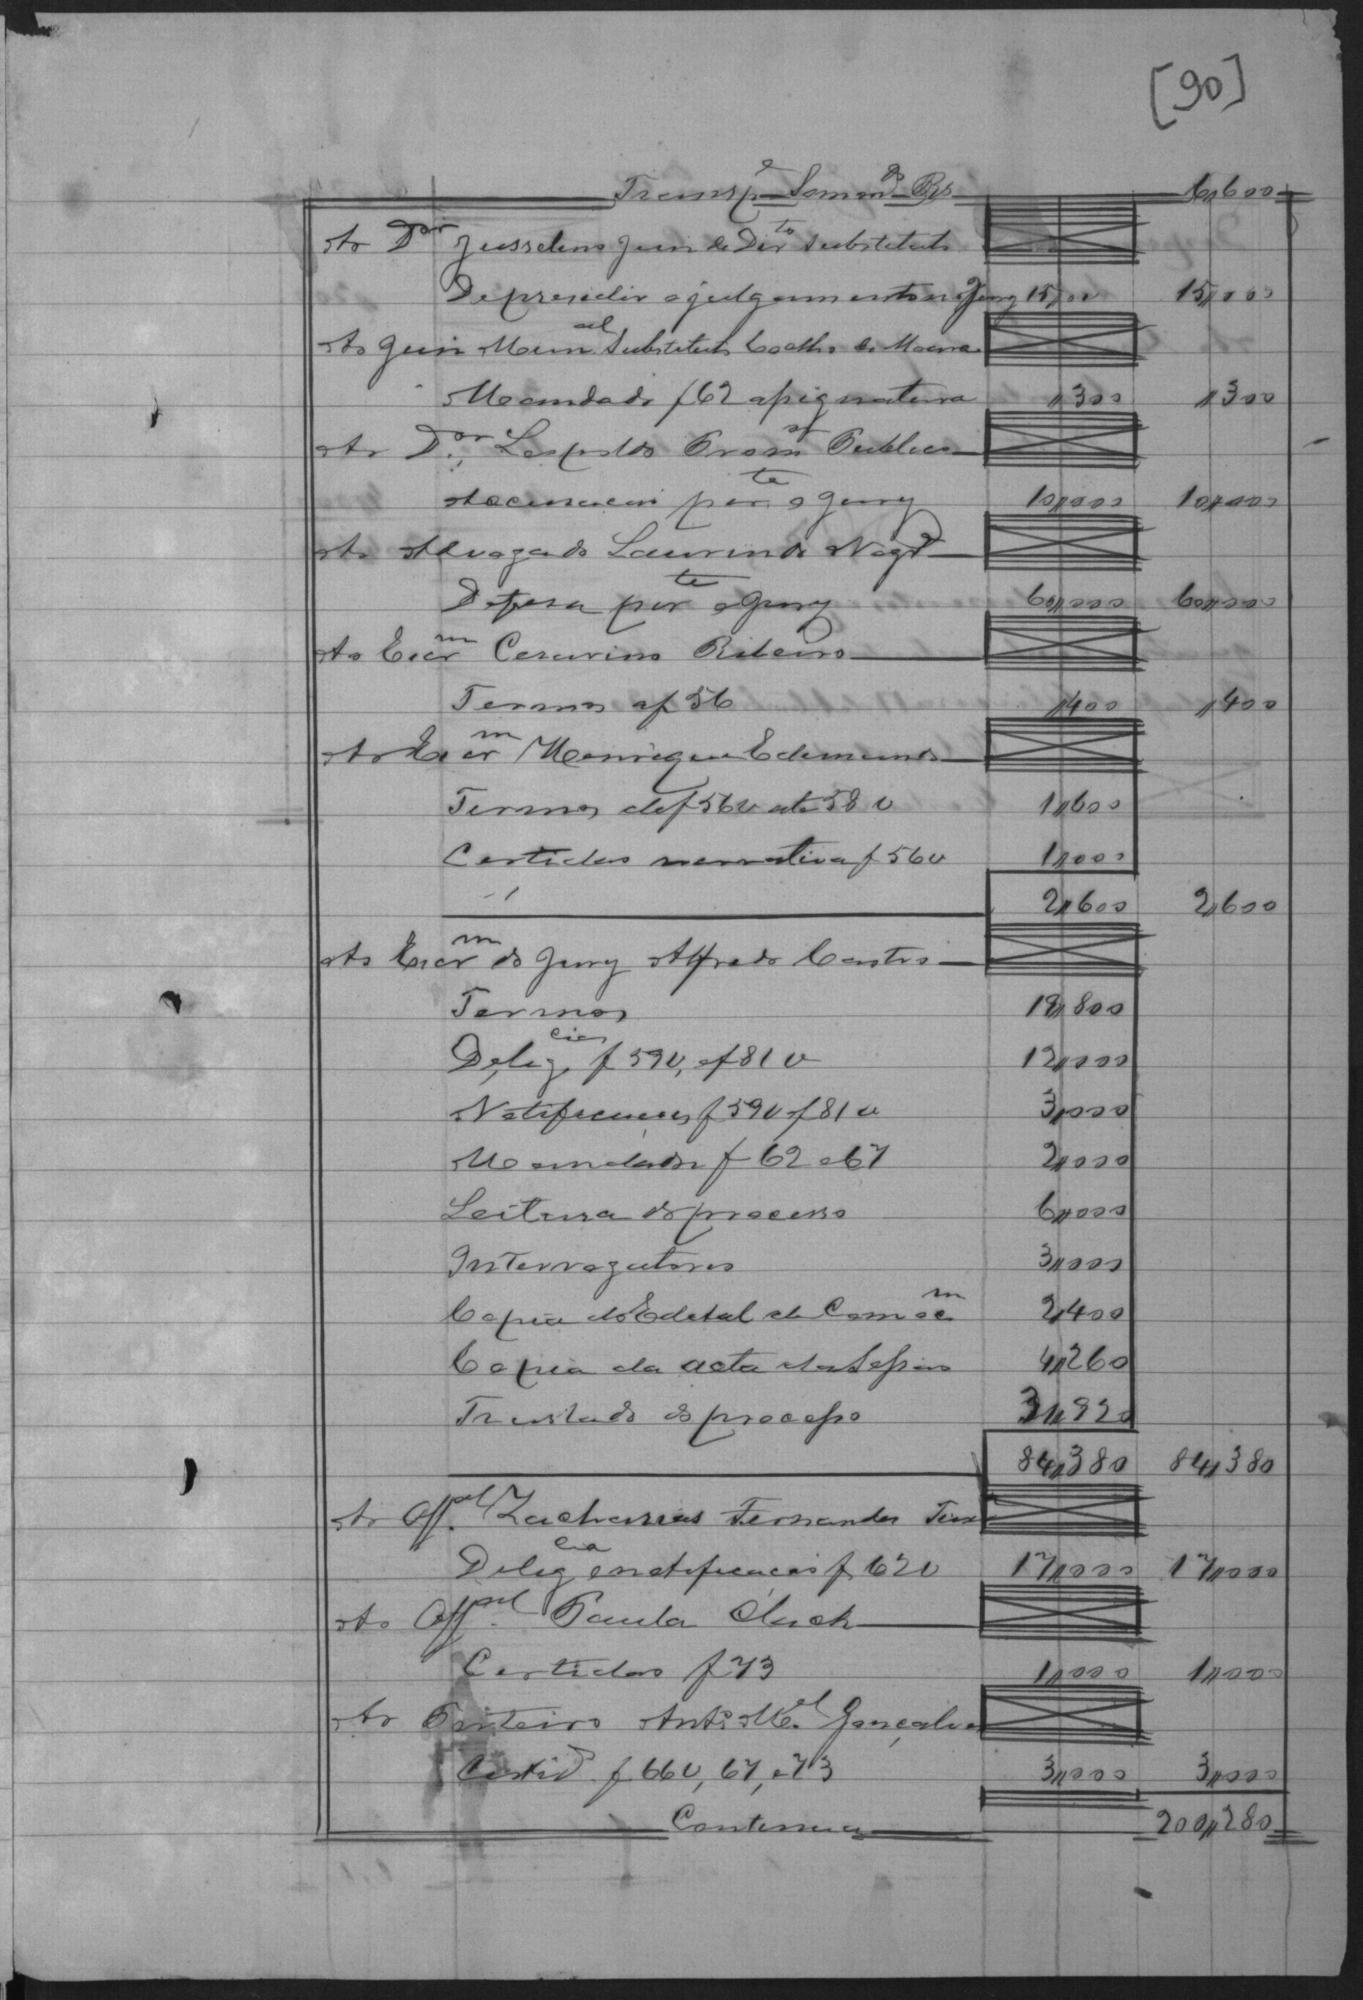 [90]
Transp.e Somm.as Rs 6,,600
Ao Dor Jusselino Juiz de Dirto Substituto
De presidir o julgamento no Jury 15,,000 15,,000
Ao Juiz Mun.al Substituto Coelho de Moura
Mandado f 62 assignatura ,,300 ,,300
Ao D.or Leopoldo Prom.or Publico
Accusação per.te o Jury 10,,000 10,,000
Ao Advogado Laurindo
Defesa per.te o Jury 60,,000 60,,000
Ao Escr.m Cesarino Ribeiro
Termos af 56 ,,400 ,,400
Ao Escr.m Henrique Edemundo
Termos de f 56 v até 58 v 1,,600
Certidão narrativa f 56 v 1,,000
2,,600 2,,600
Ao Escr.m do Jury Alfredo Castro
Termos 18,,800
Delig.cias f 59 v, e f 81 v 12,,000
Notificações f 59 v f 81 v 3,,000
Mandados f 62 e 67 2,,000
Leitura do processo 6,,000
Interrogatorios 3,,000
Copia do Edital de Convoc.m 2,,400
Copia da acta da Sessão 4,,260
Traslado do processo 31,,820
84,,380 84,,380
Ao Off.al Zacharias Fernandes
Delig.cia e notificação f 62 v 17,,000 17,,000
Ao Off.al Paula
Certidão f 73 1,,000 1,,000
Ao Porteiro Anto M.el Gonçalves
Certid. f 66 v, 67, e 73 3,,000 3,,000
Continua 200,,280